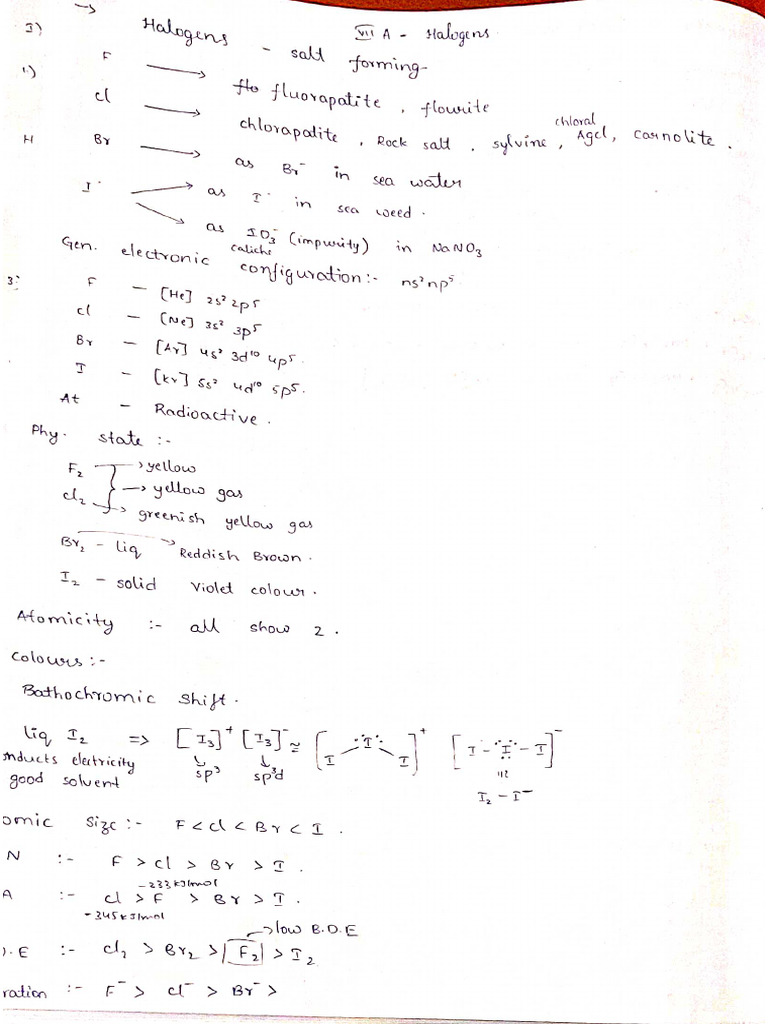 →
VII A - Halogens
I) Halogens - salt forming
1.) F → fluorapatite, flourite
Cl → chlorapatite, Rock salt, sylvine, chloral AgCl, carnolite.
H Br → as Br⁻ in sea water
I → as I⁻ in sea weed.
→ as IO₃⁻ (impurity) in NaNO₃
caliche
Gen. electronic configuration:- ns²np⁵
3: F - [He] 2s² 2p⁵
Cl - [Ne] 3s² 3p⁵
Br - [Ar] 4s² 3d¹⁰ 4p⁵.
I - [Kr] 5s² 4d¹⁰ 5p⁵.
At - Radioactive.
Phy. state :-
F₂ → yellow
→ yellow gas
Cl₂ → greenish yellow gas
Br₂ - liq → Reddish Brown.
I₂ - solid violet colour.
Atomicity :- all show 2.
Colours :-
Bathochromic shift.
liq I₂ ⇒ [I₃]⁺ [I₃]⁻ ≅ [I I I]⁺ [I - I - I]⁻
nducts electricity sp³ sp³d
good solvent I₂ - I⁻
omic size :- F < Cl < Br < I.
N :- F > Cl > Br > I.
-233 kJ/mol
A :- Cl > F > Br > I.
-345 kJ/mol
→ low B.D.E
).E :- Cl₂ > Br₂ > F₂ > I₂
ration :- F⁻ > Cl⁻ > Br⁻ >